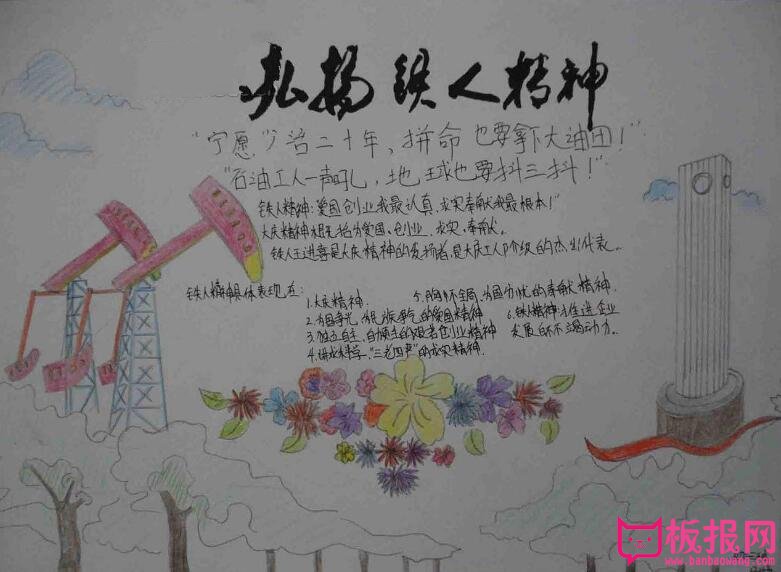 弘扬铁人精神
"宁愿"少活二十年，拼命也要拿下大油田！"
"石油工人一声吼，地球也要抖三抖！"
铁人精神：爱国创业我最认真，求实奉献我最根本！"
大庆精神概括为爱国、创业、求实、奉献。
铁人王进喜是大庆精神的发扬者，是大庆工人阶级的杰出代表。
铁人精神具体表现在：
1.大庆精神
2.为国争光、为民族争气的爱国精神
3.独立自主、自力更生的艰苦创业精神
4.讲求科学、"三老四严"的求实精神.
5.胸怀全局、为国分忧的奉献精神
6.铁人精神：推进企业
发展的不竭动力。
板报网
www.banbaowang.com